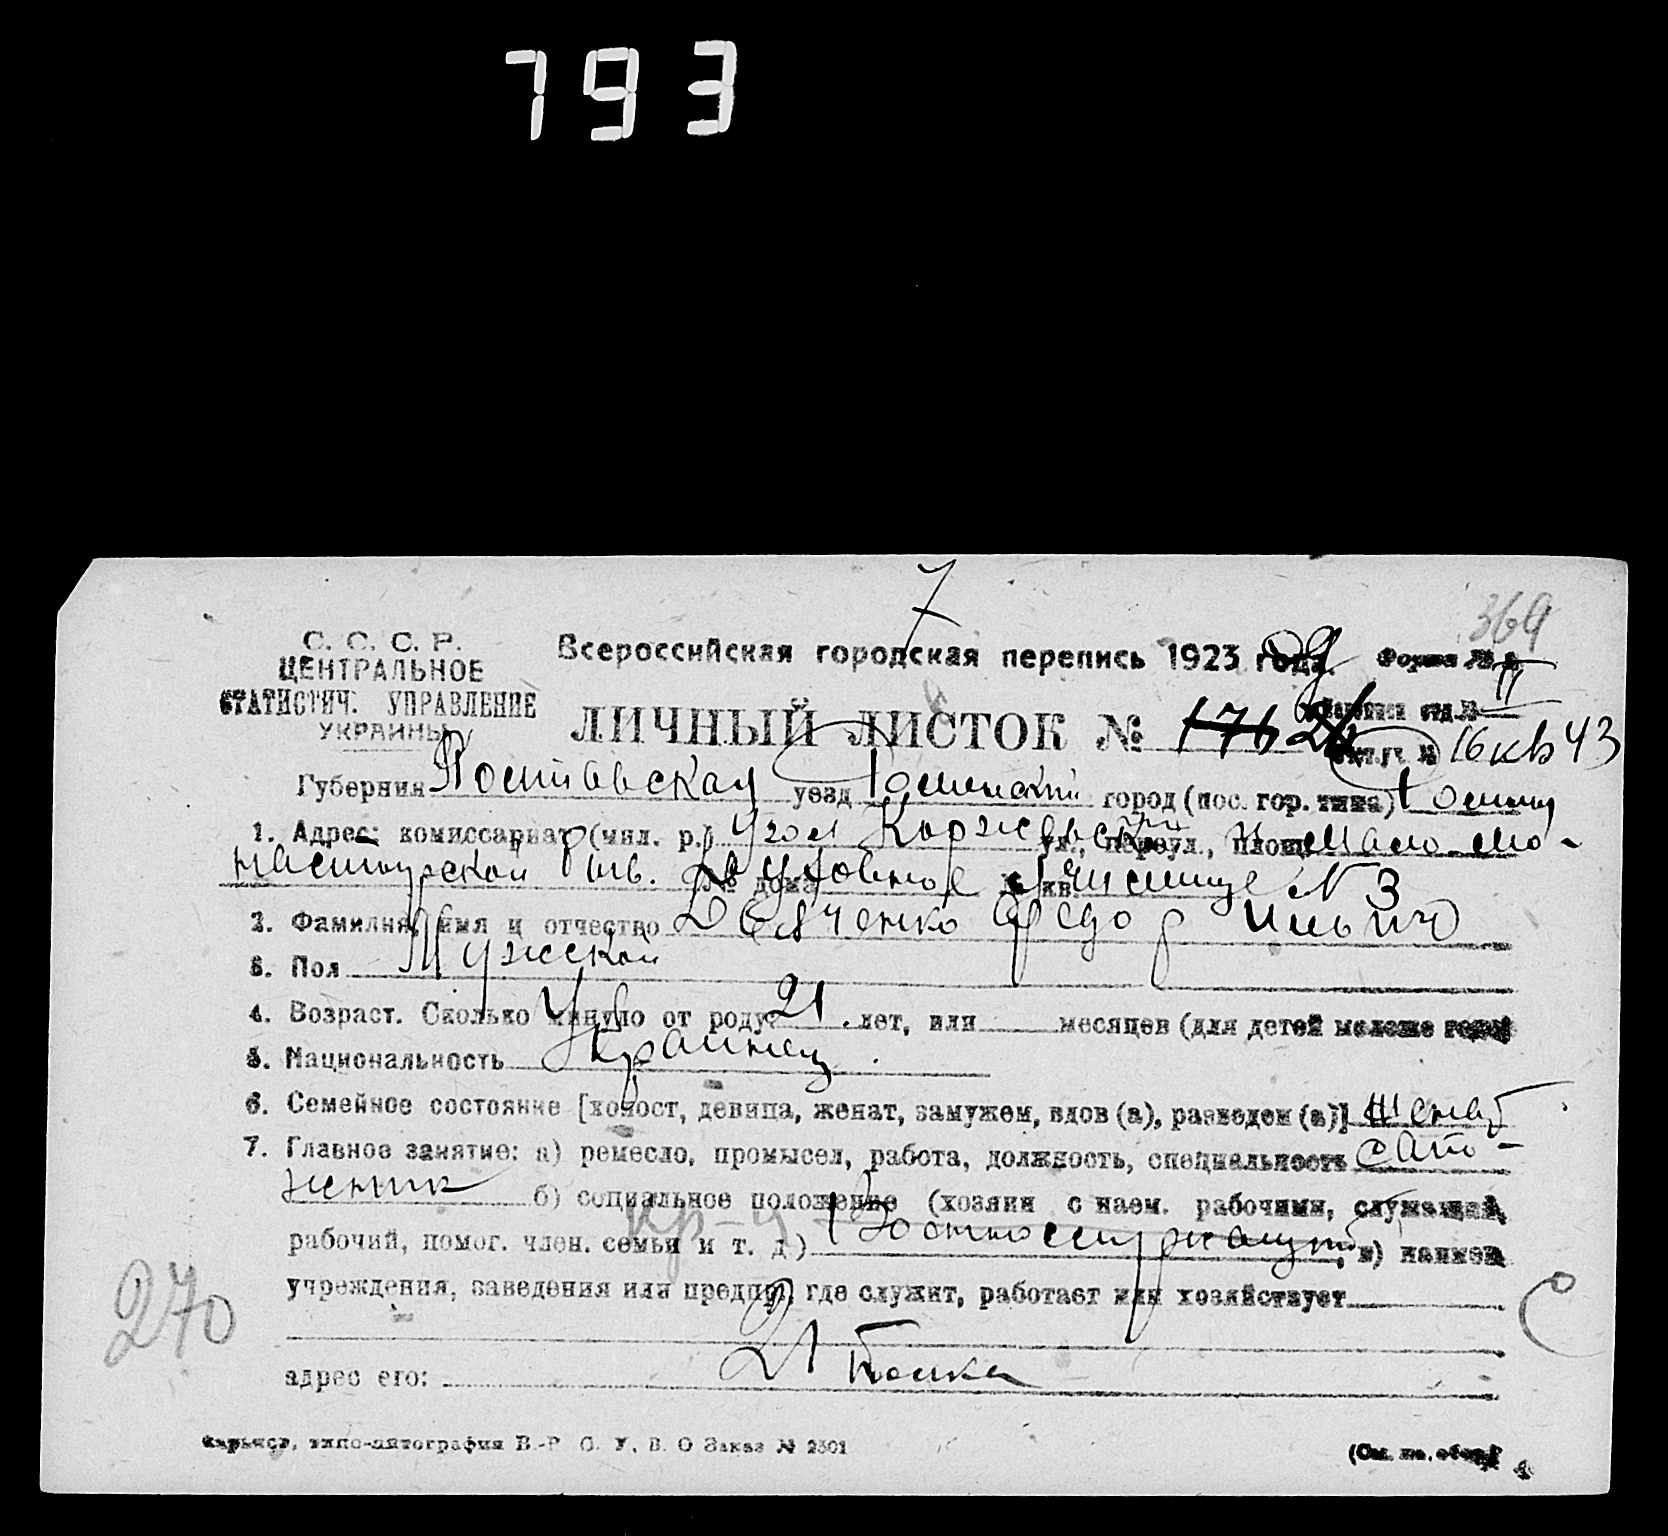 793
7
369
С. С. С. Р.
ЦЕНТРАЛЬНОЕ
СТАТИСТИЧ. УПРАВЛЕНИЕ
УКРАИНЫ
Всероссийская городская перепись 1923 года. Форма № II
ЛИЧНЫЙ ЛИСТОК № 176 16 кв 43
Губерния Полтавская уезд Роменский город (пос. гор. типа) Ромны
1. Адрес: комиссариат (мил. р.) Угол Коржевской ул., переул., площ. Мало-мо-
настырской № дома Духовное № кв. училище № 3
2. Фамилия, имя и отчество Девяченко Федор Ильич
3. Пол Мужской
4. Возраст. Сколько минуло от роду: 21 лет, или месяцев (для детей моложе года)
5. Национальность Украинец
6. Семейное состояние [холост, девица, женат, замужем, вдов (а), разведен (а)] Женат
7. Главное занятие: а) ремесло, промысел, работа, должность, специальность сапо-
жник б) социальное положение (хозяин с наем. рабочими, служащий,
рабочий, помог. член. семьи и т. д.) Военнослужащий в) наимен.
учреждения, заведения или предпр., где служит, работает или хозяйствует
270
21 Полка
адрес его:
Харьков, типо-литография В.-Р. С. У. В. О Заказ № 2501
(См. на обор.)